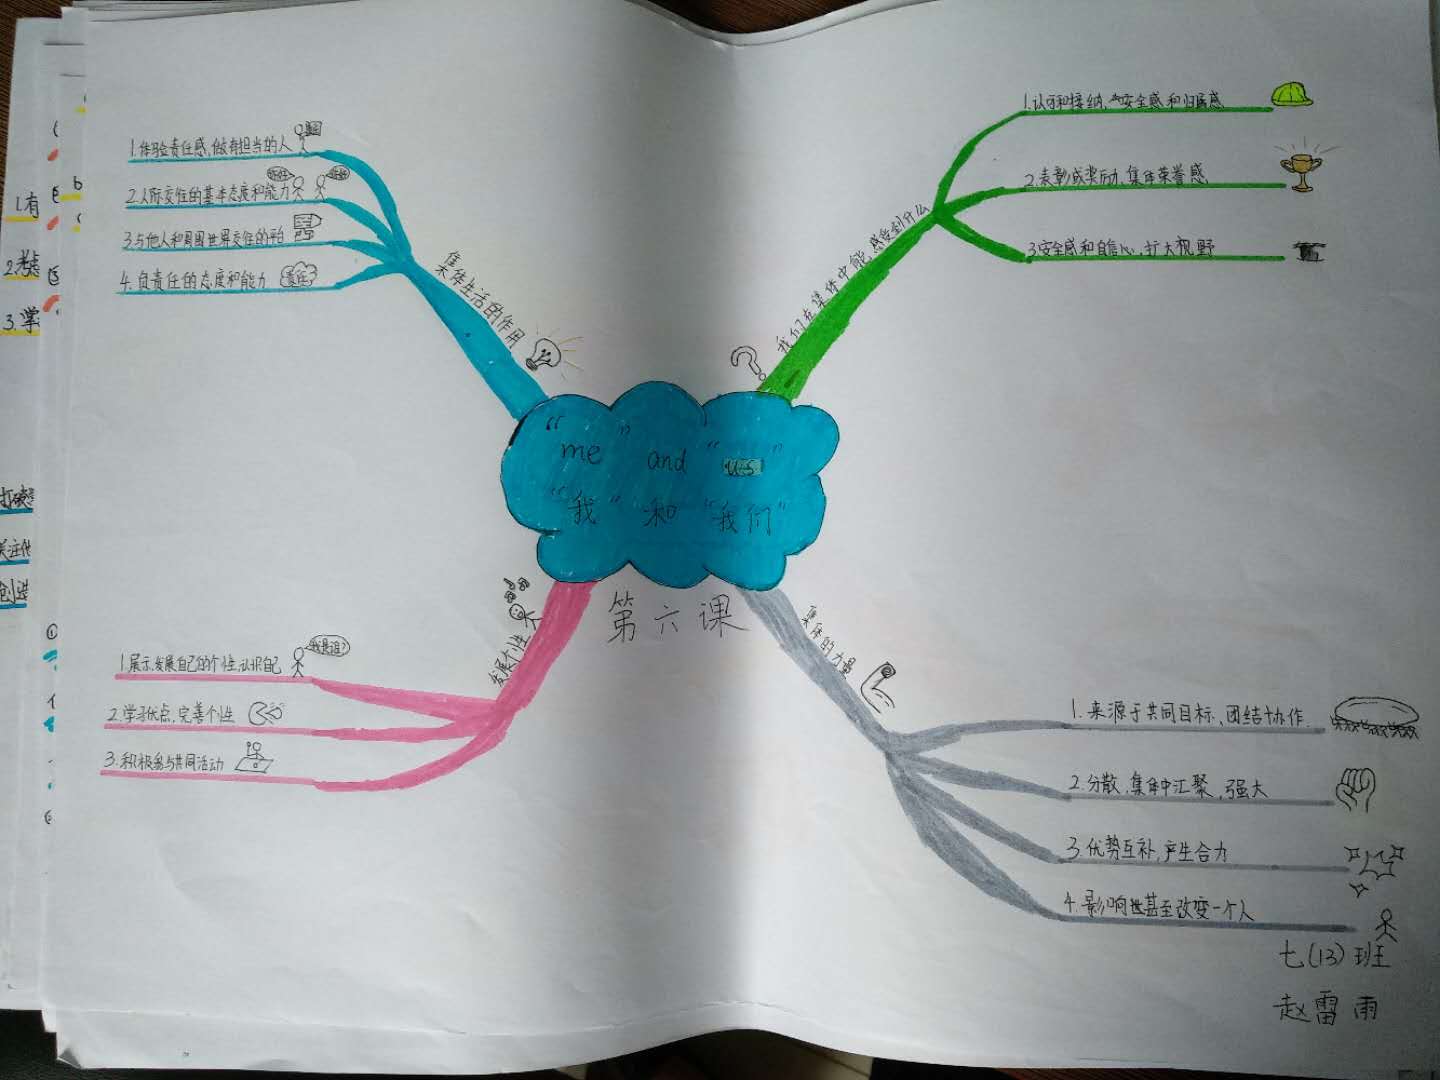 "me" and "us"
"我"和"我们"
第六课
集体生活的作用
1.体验责任感,做有担当的人
2.人际交往的基本态度和能力
3.与他人和周围世界交往的平台
4.负责任的态度和能力
责任
我们在集体中能感受到什么
1.认可和接纳,安全感和归属感
2.表彰或奖励,集体荣誉感
3安全感和自信心,扩大视野
发展个性
1展示,发展自己的个性,认识自己
我是谁?
2.学习优点,完善个性
3.积极参与共同活动
集体的力量
1.来源于共同目标、团结协作.
2.分散,集中汇聚,强大
3.优势互补,产生合力
4.影响甚至改变一个人
七(13)班
赵雷雨
1.有
2.考虑
3.学
打破
关注他
创造